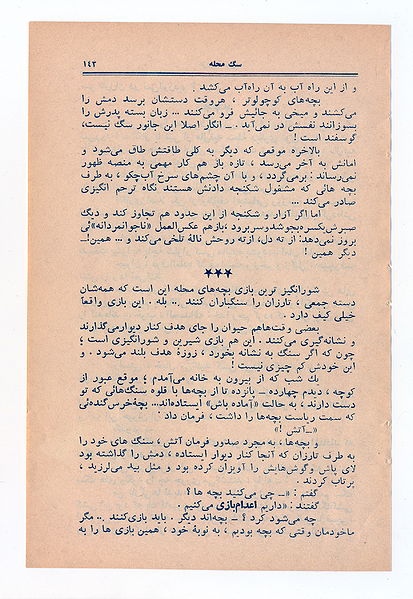 سگ محله ۱۴۳
و از این راه آب به آن راه‌آب می‌کشد.
بچه‌های کوچولوتر ، هروقت دستشان برسد دمش را
می‌کشند و میخی به جائیش فرو می‌کنند ... زبان بسته پدرش را
بسوزانند نفسش در نمی‌آید . ــ انگار اصلا این جانور سگ نیست،
گوسفند است !
بالاخره موقعی که دیگر به کلی طاقتش طاق می‌شود و
امانش به آخر می‌رسد ، تازه باز هم کار مهمی به منصه ظهور
نمی‌رساند : برمی‌گردد ، و با آن چشم‌های سرخ آب‌چکو ، به طرف
بچه هائی که مشغول شکنجه دادنش هستند نگاه ترحم انگیزی
صادر می‌کند ...
اما اگر آزار و شکنجه از این حدود هم تجاوز کند و دیگ
صبرش یکسره بجوشد و سر برود، بازهم عکس‌العمل «ناجوانمردانه»ئی
بروز نمی‌دهد: از ته دل، از ته روحش نالهٔ تلخی می‌کند و ... همین!ــ
دیگر همین !
★★★
شورانگیز ترین بازی بچه‌های محله این است که همه‌شان
دسته جمعی ، تارزان را سنگباران کنند ... بله . این بازی واقعاً
خیلی کیف دارد .
بعضی وقت‌هاهم حیوان را جای هدف کنار دیوارمی‌گذارند
و نشانه‌گیری می‌کنند . این هم بازی شیرین و شورانگیزی است ؛
چون که اگر سنگ به نشانه بخورد ، زوزهٔ هدف بلند می‌شود . و
این خودش کم چیزی نیست !
یك شب که از بیرون به خانه می‌آمدم ؛ موقع عبور از
کوچه ، دیدم چهارده ــ پانزده تا از بچه‌ها با قلوه سنگ‌هائی که تو
دست دارند ، به حالت «آماده باش» ایستاده‌اند... بچهٔ‌خرس‌گنده‌ئی
که سمت ریاست بچه‌ها را داشت ، فرمان داد :
«ــ آتش !»
بچه‌ها ، به مجرد صدور فرمان آتش ، سنگ های خود را
به طرف تارزان که آنجا کنار دیوار ایستاده ، دمش را گذاشته بود
لای پاش و گوش‌هایش را آویزان کرده بود و مثل بید می‌لرزید ،
پرتاب کردند .
گفتم : «ــ چی می‌کنید بچه ها ؟
گفتند : «داریم اعدام‌بازی می‌کنیم .
چه می‌شود کرد ؟ ــ بچه‌اند دیگر . باید بازی‌کنند ... مگر
ماخودمان وقتی که بچه بودیم ، به نوبهٔ خود ، همین بازی ها را به